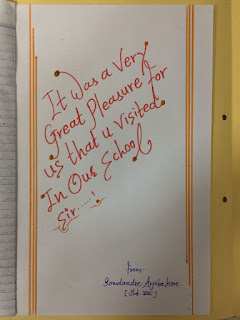 It Was a Very
Great Pleasure For
us that u visited
In Our School
Sir.....!
From:
[Std. VII]